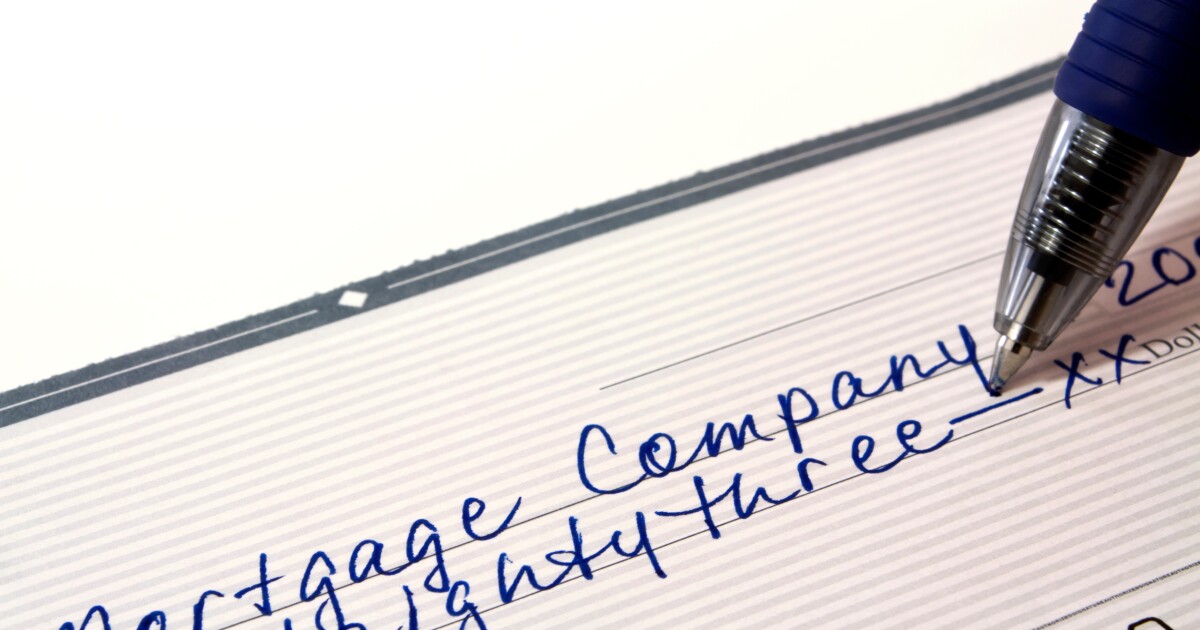 200
Mortgage Company
eighty three — xx Doll